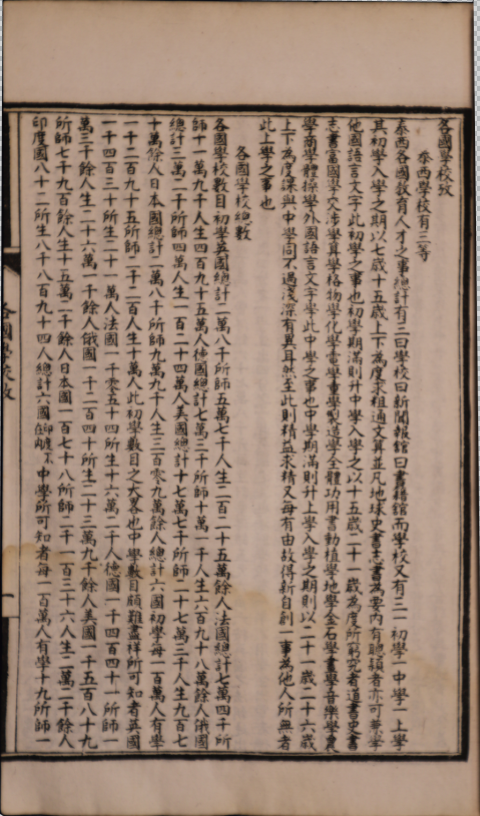 各國學校攷
泰西學校有三等
泰西各國教育人才之事總計有三曰學校曰新聞報館曰書籍館而學校又有三一初學一中學一上學
其初學入學之期以七歲十五歲上下為度求粗通文算並凡地球史書志書為要內有聰頴者亦可兼學
他國語言文字此初學之事也初學期滿則升中學入學之以十五歲二十一歲為度所窮究者道書史書
志書富國學交涉學算學格物學化學電學重學製造學全體功用書動植學地學金石學畫學音樂學農
學商學體操學外國語言文字學此中學之事也中學期滿則升上學入學之期則以二十一歲二十六歲
上下為度課與中學同不過淺深有異耳然至此則精益求精又每有由故得新自創一事為他人所無者
此上學之事也
各國學校總數
各國學校數目初學英國總計二萬八千所師五萬七千人生二百二十五萬餘人法國總計七萬四千所
師十一萬九千人生四百九十五萬人德國總計七萬三千所師十萬一千人生六百九十八萬餘人俄國
總計三萬二千所師四萬人生一百二十四萬人美國總計十七萬七千所師二十七萬三千人生九百七
十萬餘人日本國總計二萬八千所師九萬九千人生三百零九萬餘人總計六國初學每一百萬人有學
一千二百九十五所師二千二百人生十萬人此初學數目之大畧也中學數目頗難盡祥所可知者英國
一千四百三十所生二十一萬人法國一千零五十四所生十六萬二千人德國一千四百四十一所師一
萬三千餘人生二十六萬一千餘人俄國一千二百四十所生二十三萬九千餘人美國一千五百八十九
所師七千九百餘人生十五萬二千餘人日本國一百七十八所師二千一百三十六人生二萬二千餘人
印度國八十二所生八千八百九十四人總計六國印度不在內中學所可知者每一百萬人有學十九所師一
各國學校攷
一